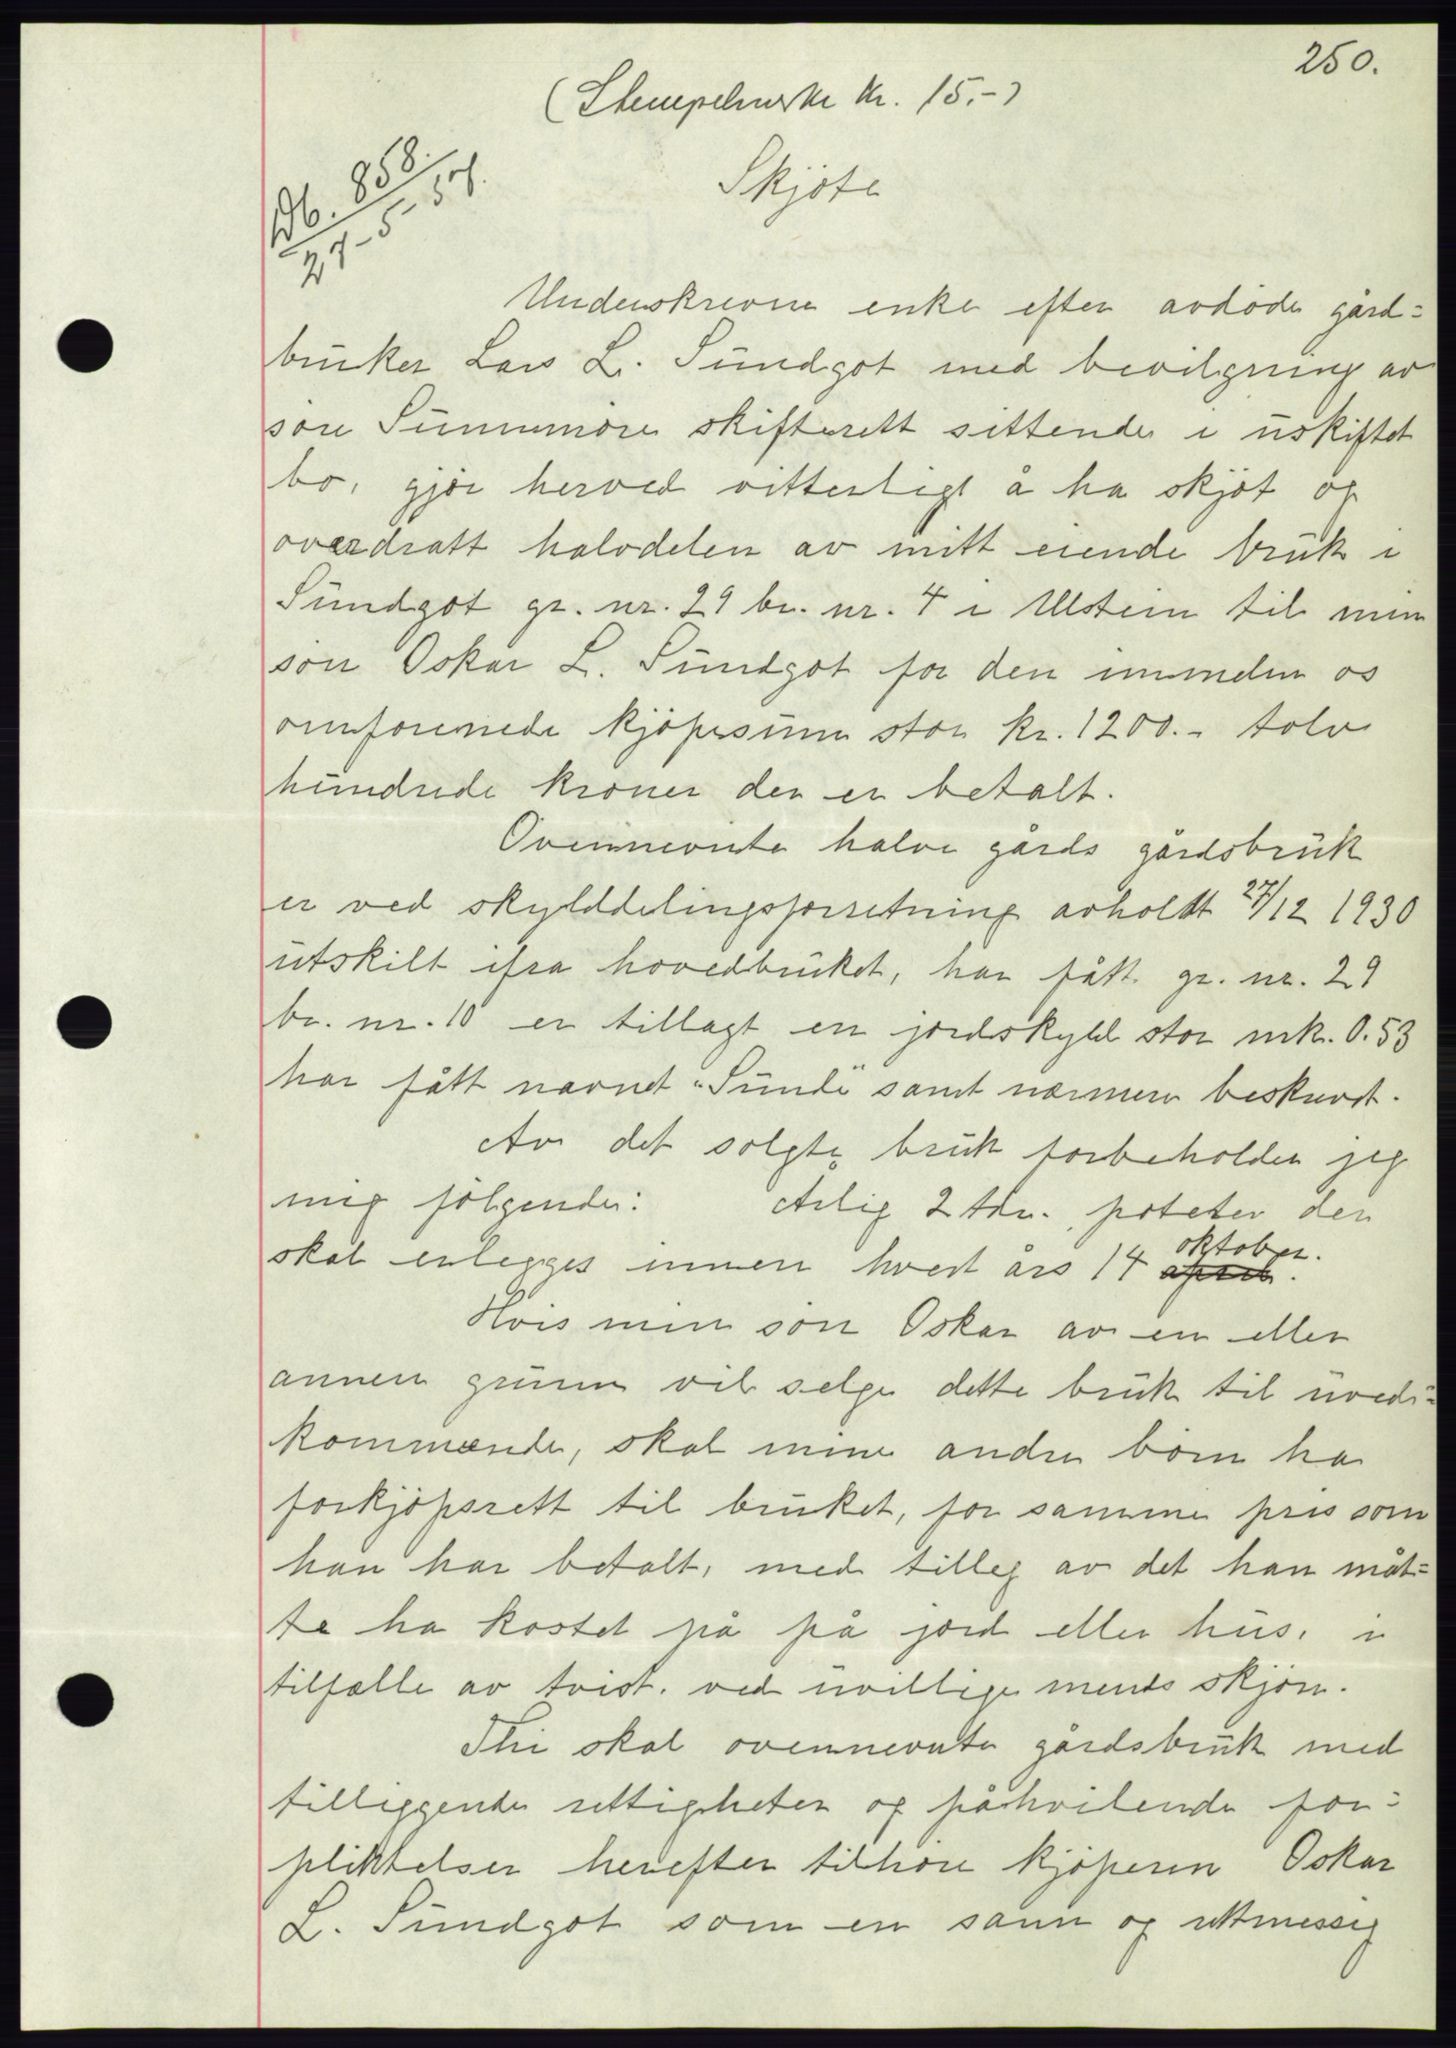 250.
(Stempelmerke kr. 15.-)
Db. 858.
27-5-37.
Skjøte
Underskrevne enke efter avdøde gård=
bruker Lars L. Sundgot med bevilgning av
søre Sunnmøre skifterett sittende i uskiftet
bo, gjør herved vitterligt å ha skjøt og
overdratt halvdelen av mitt eiende bruk i
Sundgot gr. nr. 29 br. nr. 4 i Ulstein til min
søn Oskar L. Sundgot for den immelem os
omforenede kjøpesum stor kr. 1200.- tolv
hundrede kroner der er betalt.
Ovennevnte halve gårds gårdsbruk
er ved skylddelingsforretning avholdt 27/12 1930
utskilt ifra hovedbruket, har fått gr. nr. 29
br. nr. 10 er tillagt en jordskyld stor mk. 0.53
har fått navnet "Sunde" samt nærmere beskrevet.
Av det solgte bruk forbeholder jeg
mig følgende: Årlig 2 tdr. poteter der
skal erlegges innen hvert års 14 april oktober.
Hvis min søn Oskar av en eller
annen grunn vil selge dette bruk til uved=
kommende, skal mine andre børn ha
forkjøpsrett til bruket, for samme pris som
han har betalt, med tilleg av det han måt=
te ha kostet på på jord eller hus, i
tilfælle av tvist, ved uvillige mends skjøn.
Thi skal ovennevnte gårdsbruk med
tilliggende rettigheter og påhvilende for=
pliktelser herefter tilhøre kjøperen Oskar
L. Sundgot som en sann og rettmessig